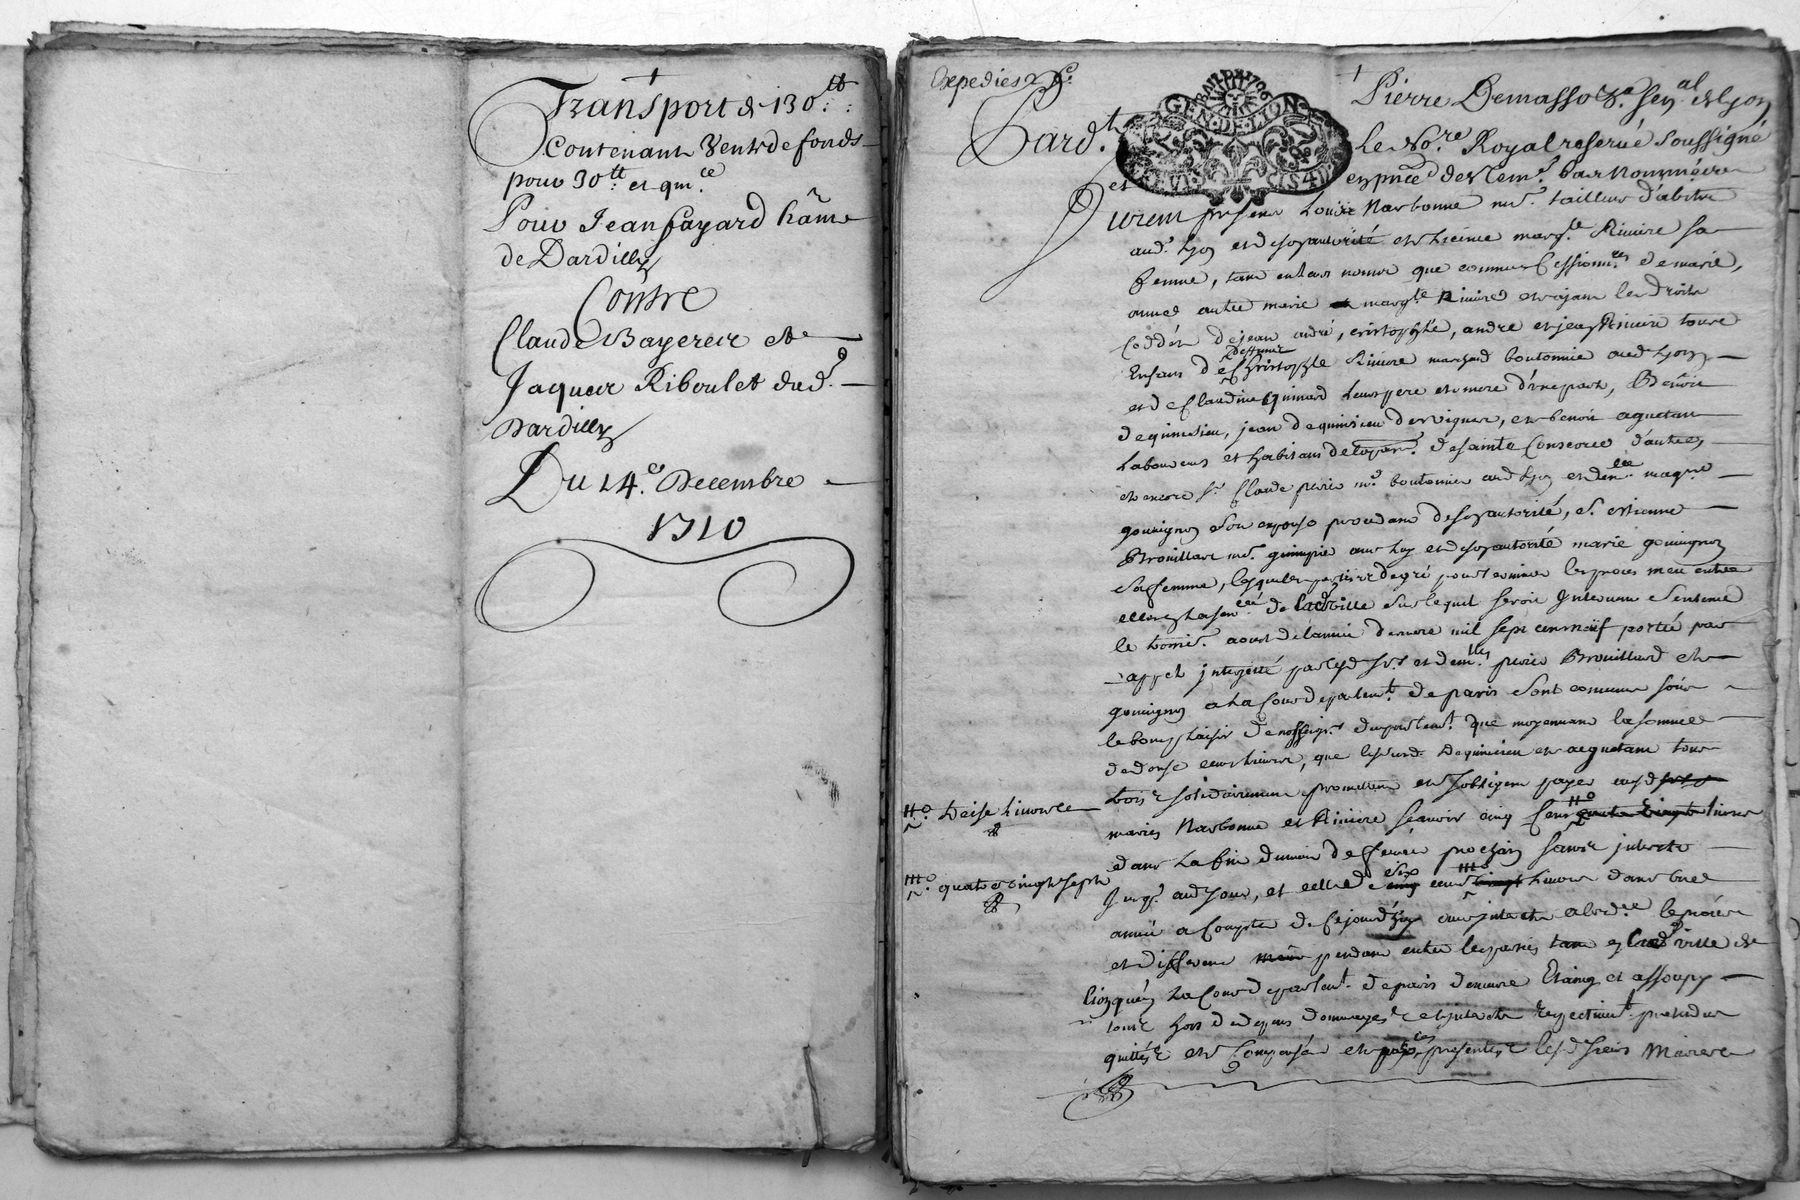 Transport de 130 ₶
Contenant Vente de fonds
pour 30 ₶ et qui.ce
Pour Jean fayard hame
de Dardilly
Contre
Claude Bayerer et
Jaques Riboulet dud.
Dardilly
Du 14.e Decembre
1710
Expedies 2 f.
GEN. DE LION
Pierre Demasso Sen.al de Lyon
Pard.t le No.re Royal reservé Soussigné
et en pnce des tem. bas nommés
Furent presens Louis Narbonne m.r tailleur d'abits
aud. Lyon et de son autorité marg.te Riviere sa
femme, tant en leurs noms que comme Cessionn.res de marie,
anne autre marie marg.te Riviere et ayant les droits
Ceddés de jean andré, cristophle, andre et jean Riviere tous
Enfans de deffunct Christophle Riviere marchand boutonnie aud. Lyon
et de Claudine Guinard leurs pere et mere d'une part, Benoit
dequinsieu, jean dequinsieu des vignes, et benoit aguetan
Laboureurs et habitans de la parr. de sainte Consorce d'autre,
et encore s.r Claude perie m.r boutonnier aud Lyon et dem.lle
gouvignon son espouse procedant de son autorité, s. estienne
Brouillard m.r guimpie aud Lyon et de son autorité marie gouvignon
sa femme, lesquelles parties de gré pour terminer les proces meu entre
elles en la sen.cée de lad. ville sur lequel seroit Intervenu sentence
le aoust de l'année derniere mil sept cens neuf portée par
appel interjetté par lesd. Srs et dem.lles perie Brouillard et
gouvignon a la Cour de parlem.t de paris sont convenus sous
le bon plaisir de nosseig.rs du parlem.t que moyennant la somme
de douse cens livres, que lesd. Dequinsieu et aguetant tous
trois solidairement promettent et s'obligent payer ausd
maries Narbonne et Riviere scavoir cinq Cens livres
H.o treise livres
dans la fin du mois de fevrier prochain sans interets
H.o quatre vingt sept
jusq. aud. jour, et celle de six cens livres dans une
année a Compter de ce jourd'huy avec interets le proces
et different pendant entre les parties tant en lad ville de
lion qu'en la Cour de parlem.t de paris demeure Etaint et assoupy
tous hors de depens dommages et interets respectivem.t pretendus
quittés et Compensés et presentes lesd. siers Mariés